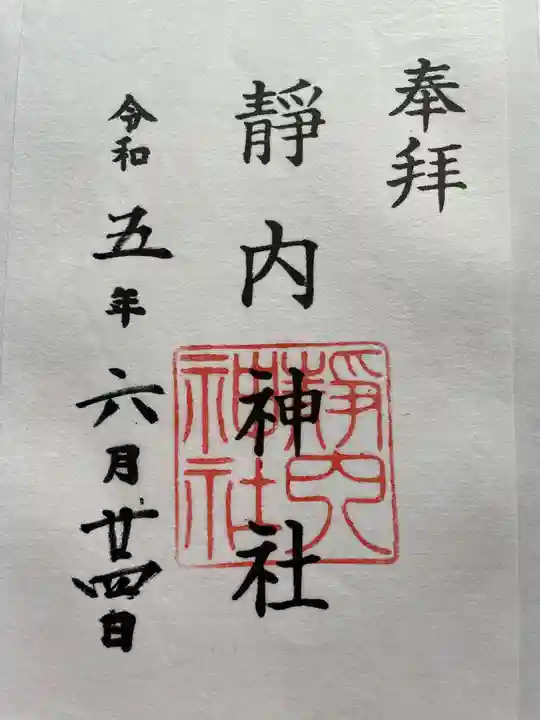 奉拝
靜内神社
令和五年六月廿四日
靜内
神社